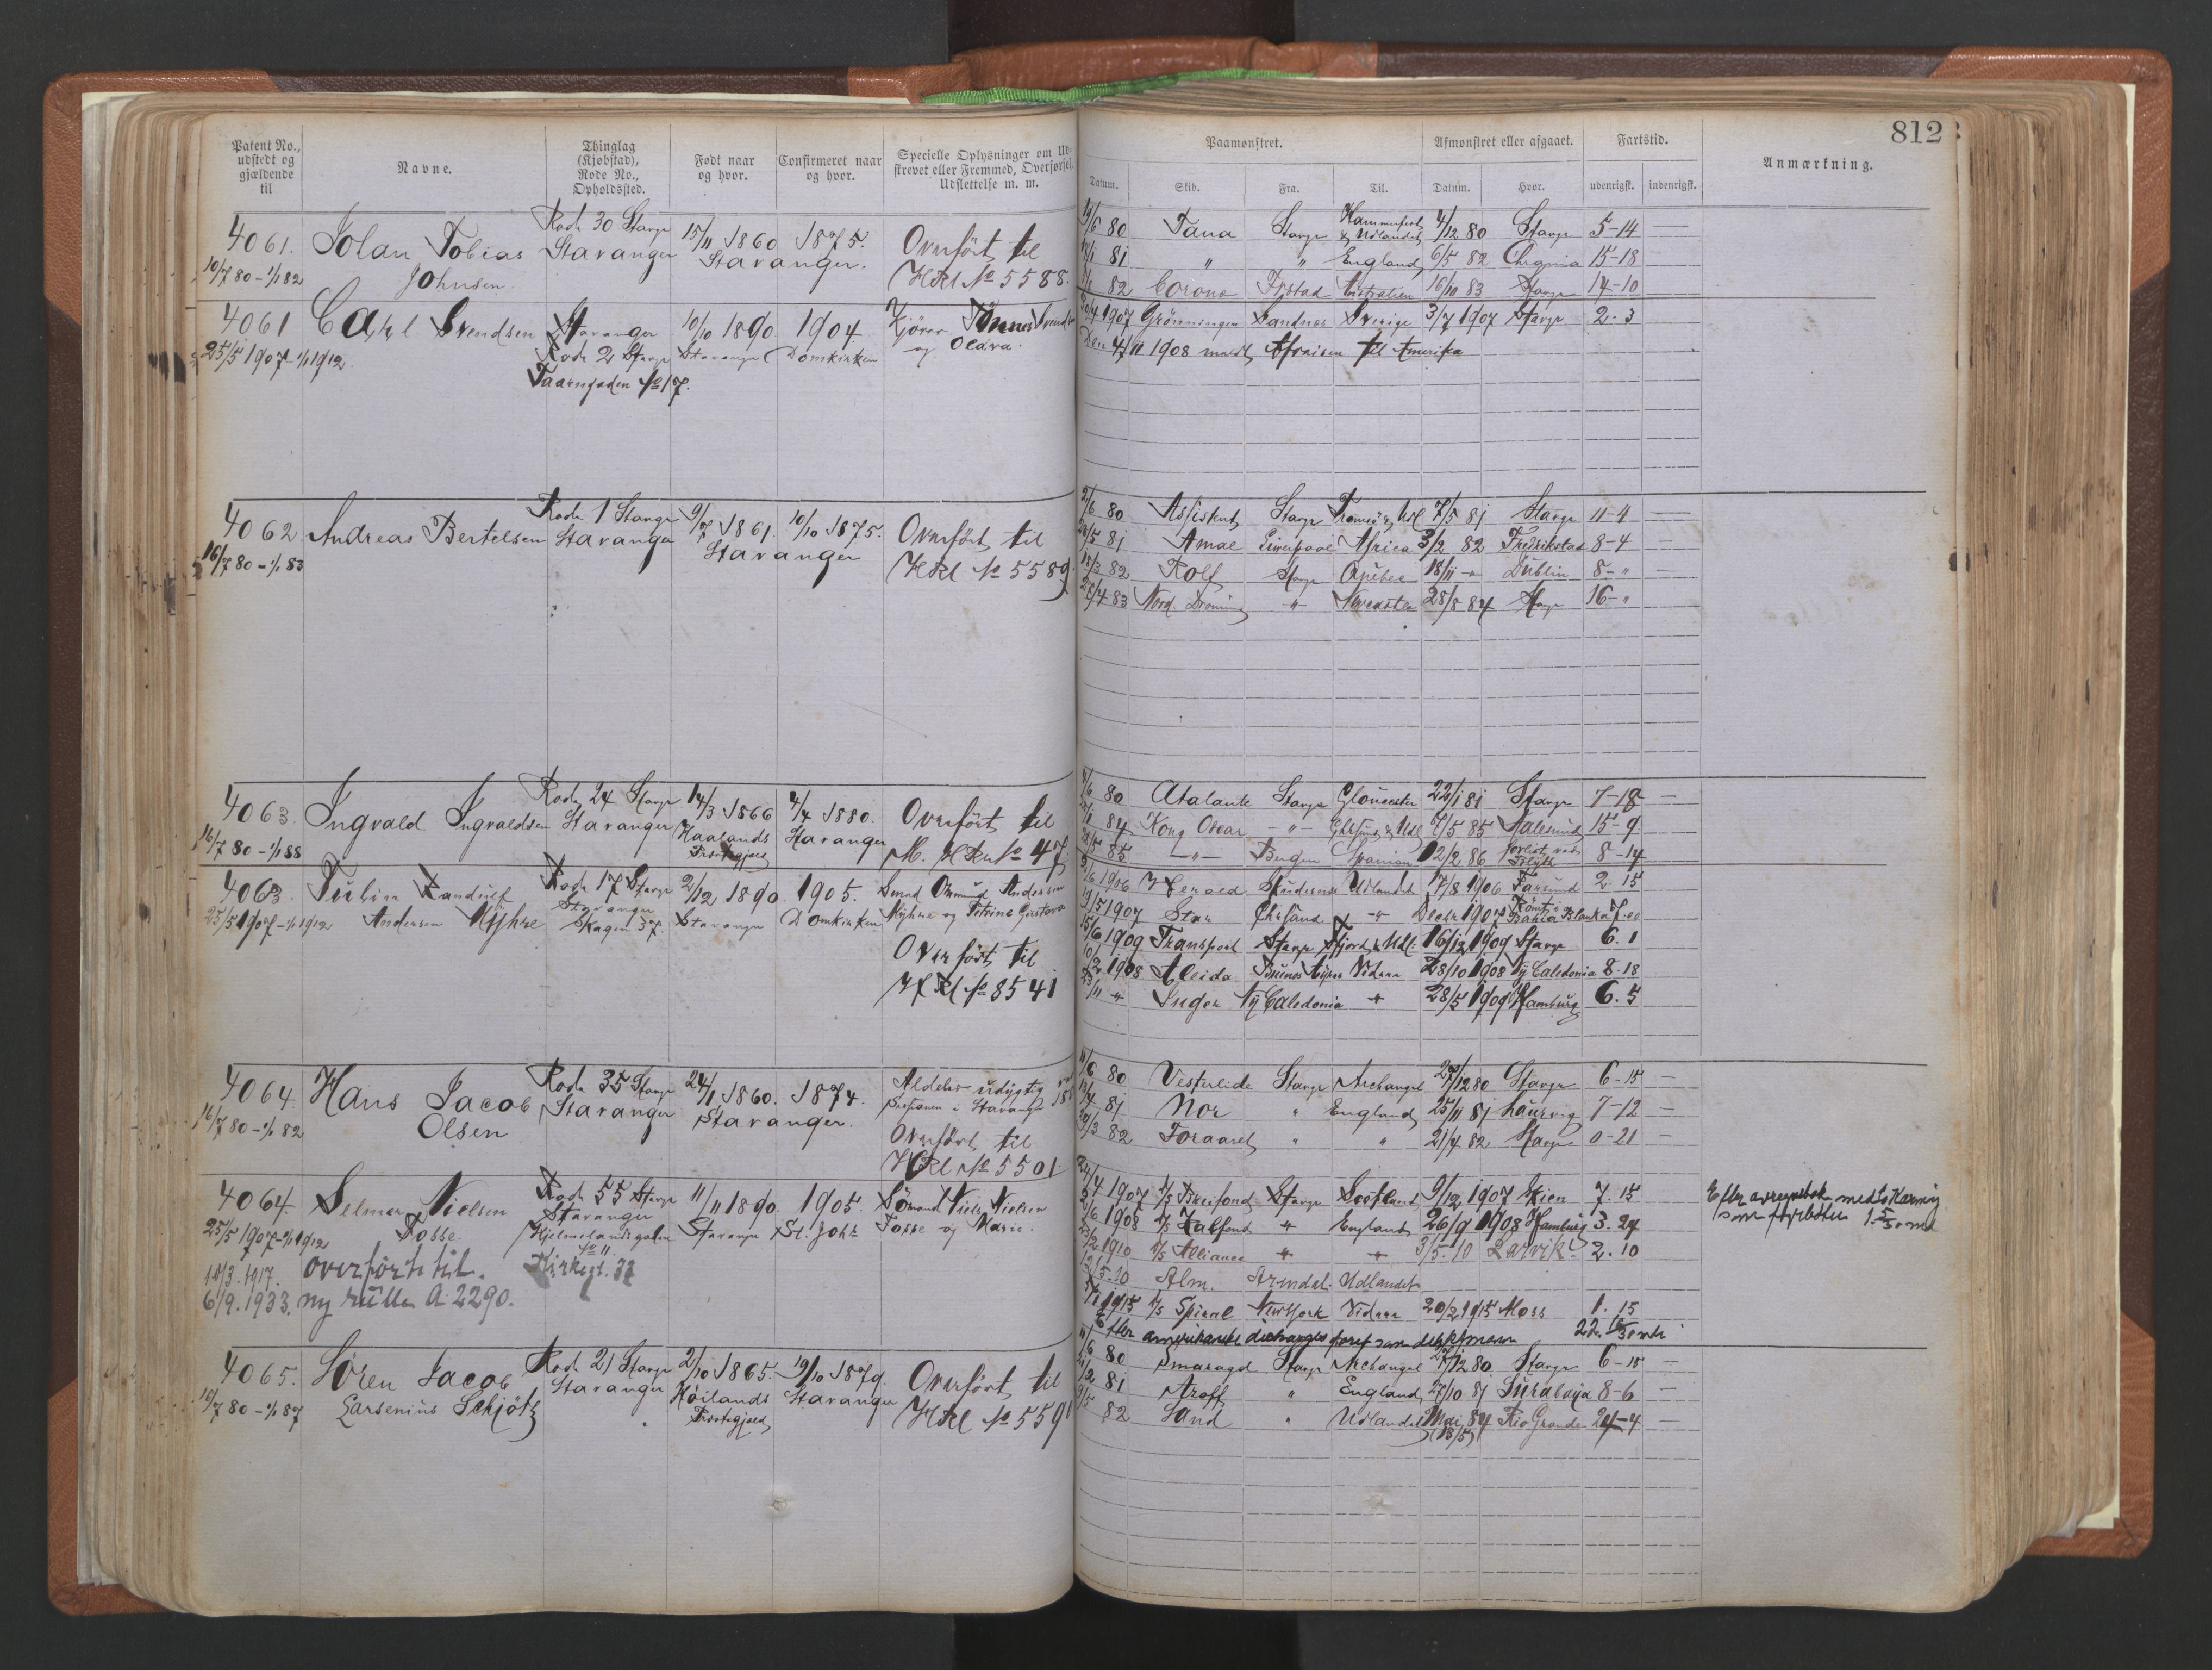 812
Patent No., udstedt og gjældende til
Navne.
Thinglag (Kjøbstad), Rode No., Opholdssted.
Født naar og hvor.
Confirmeret naar og hvor.
Specielle Oplysninger om Ud-
skrevet eller Fremmed, Overførsel,
Udslettelse m. m.
Paamønstret.
Afmønstret eller afgaaet.
Fartstid.
Anmærkning.
Datum. Skib. Fra. Til. Datum. Hvor. udenrigsk. indenrigsk.
4061. Johan Tobias Johnsen
10/7 80 - 1/1 82
Rode 30 Stavgr Stavanger
15/11 1860 1875.
Stavanger.
Overført til
HRl No 5588.
14/6 80 Tana Stavgr Hammerfest & Udlandet 4/12 80 Stavgr 5-14
81 " " England 6/5 82 Chrania 15-18
82 Corona Ystad Australien 16/10 83 Stavgr 14-10
4061 Carl Svendsen
25/5 1907 - 1/1 1912.
Stavanger
Rode 2 Stavgr
Taarngaden No 17.
10/10 1890. 1904.
Stavanger Domkirken
og Olava.
1907 Grønningen Sandnes Sverige 3/7 1907 Stavgr 2. 3
Den 4/11 1908 meldt Afreisen til Amerika
4062 Andreas Bertelsen
16/7 80 - 1/1 83
Rode 1 Stavgr Stavanger
9/7 1861. 10/10 1875.
Stavanger
Overført til
HRl No 5589
2/6 80 Assistent Stavgr Tromsø & Udl 7/5 81 Stavgr 11-4
28/5 81 Amae Liverpool Africa 3/2 82 Fredrikstad 8-4
18/3 82 Rolf Stavgr Quebec 18/11 - Dublin 8-"
28/4 83 Nord. Dronning -"- Newcastle 28/8 84 Stavgr 16-"
4063. Ingvald Ingvaldsen
16/7 80 - 1/1 88
Rode 24 Stavgr Stavanger
14/3 1866 4/4 1880.
Haalands Præstegjæld Stavanger
Overført til
80 Atalante Stavgr Gloucester 22/1 81 Stavgr 7-18
84 Kong Oscar -"- Chrsund & Udl 6/5 85 Aalesund 15-9
85 -"- Bergen Spanien 12/2 86 8-14
4063. Andersen Myhre
25/5 1907 - 1/1 1912
Rode 17 Stavgr
Stavanger
Skagen 37.
2/12 1890. 1905.
Stavanger Domkirken
Overført til
HRl No 8541
1906 Herold Skudesnes Udlandet 17/8 1906 Farsund 2. 15
9/5 1907 Star Chrsand -"- Decbr 1907 Rømt i Bahia Blanka 7.
15/6 1909 Transport Stavgr 16/12 1909 Stavgr 6. 1
1908 Aleida Buenos Ayres Videre 28/10 1908 Ny Caledonia 8. 18
Inger Ny Caledonia -"- 28/5 1909 Hamburg 6. 5
4064. Hans Jacob Olsen
16/7 80 - 1/1 82
Rode 35 Stavgr Stavanger
24/1 1860. 1874.
Stavanger.
Overført til
HRl No 5501
11/6 80 Vesterlide Stavgr Archangel 27/12 80 Stavgr 6-15
81 Nor " England 25/11 81 Laurvig 7-12
82 Foraaret " " 21/4 82 Stavgr 0-21
4064. Selmer Nielsen Tosse
25/5 1907 - 1/1 1912
10/3. 1917. overført til
6/9. 1933. ny rulle A 2290.
Rode 55 Stavgr
Stavanger
Hjelmelandsgaden No 11.
Kirkegt. 37
11/11 1890. 1905.
Stavanger St. Johs
Sømand Niels Nielsen
Tosse og Marie.
24/4 1907 Stavgr Scotland 9/12 1907 Skien 7. 15
1908 -"- England 26/9 1908 Hamburg 3. 24
1910 Alliance -"- -"- 3/5. 10 Larvik. 2. 10
Alm. Arendal. Udlandet
1915 Spiral New York Videre 20/2 1915 Moss 1. 15
4065. Søren Jacob Larsenius Schjøtz
10/7 80 - 1/1 87
Rode 21 Stavgr Stavanger
2/10 1865. 19/10 1879.
Høilands Præstegjæld Stavanger
Overført til
HRl No 559
11/6 80 Smaragd Stavgr Archangel 27/12 80. Stavgr 6-15
81 Aroff " England 27/10 81 Surabaya 8-6
82 Sand " Udlandet Mai 84 (13/5) Rio Grande 24-4